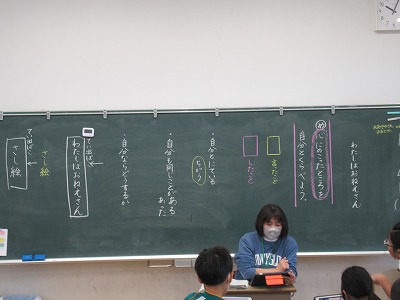 わたしはおねえさん
め 心にのこったところを
自分とくらべよう。
言ったこと
したこと
・自分とにている
ちがう
・自分も同じことがある
あった
・自分ならどうするか
てい出ばこ
わたしはおねえさん
さし絵
てい出ばこ
さし絵